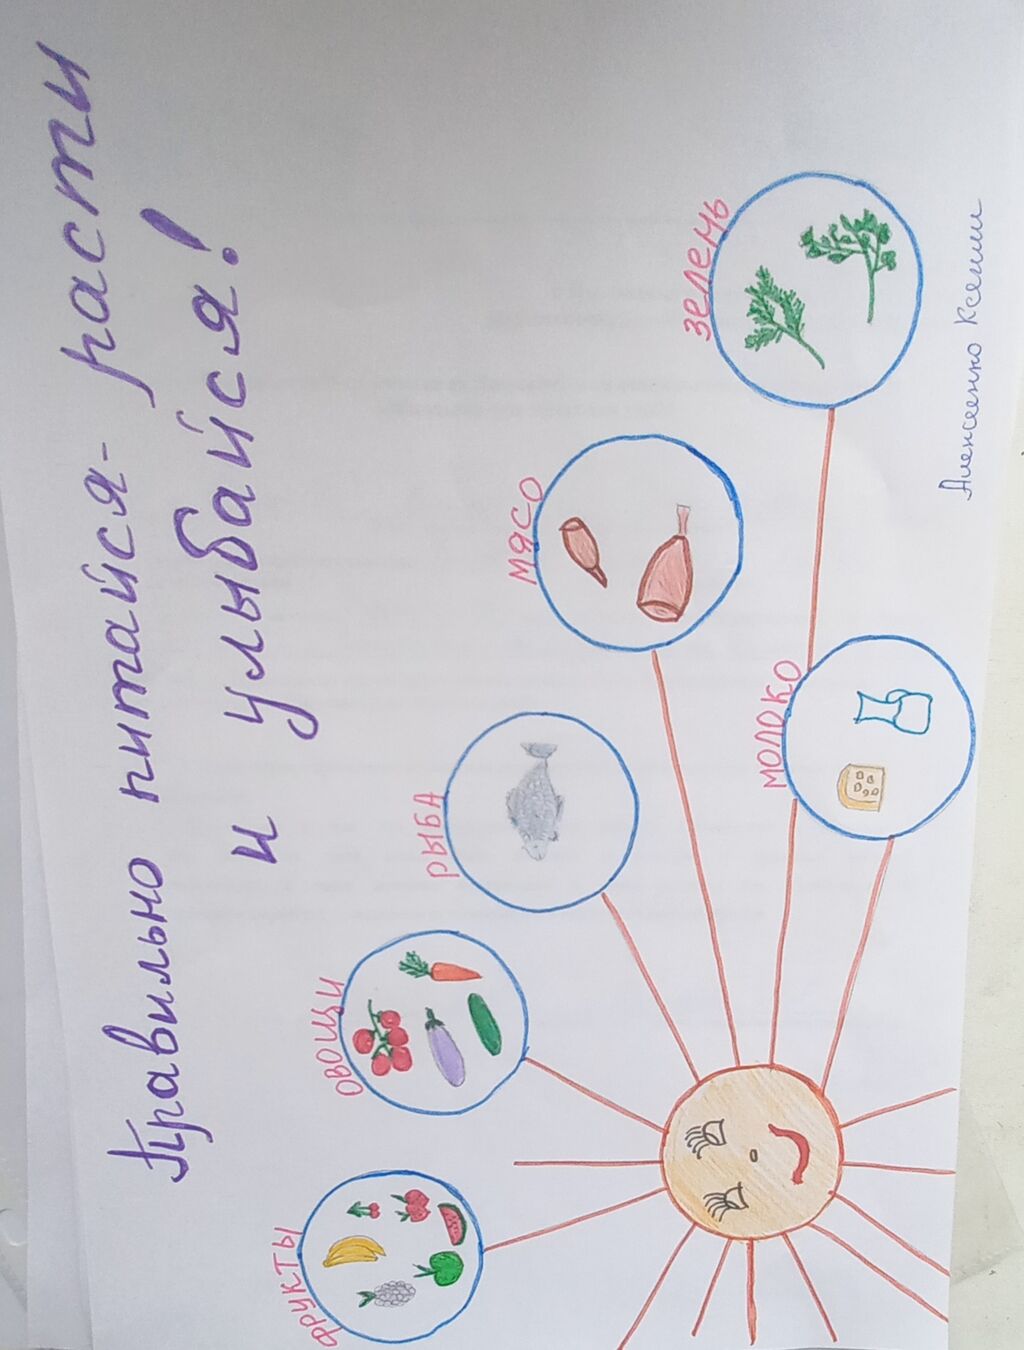 Правильно питайся- расти
и улыбайся!
фрукты
овощи
рыба
мясо
зелень
молоко
Алексеенко Ксении